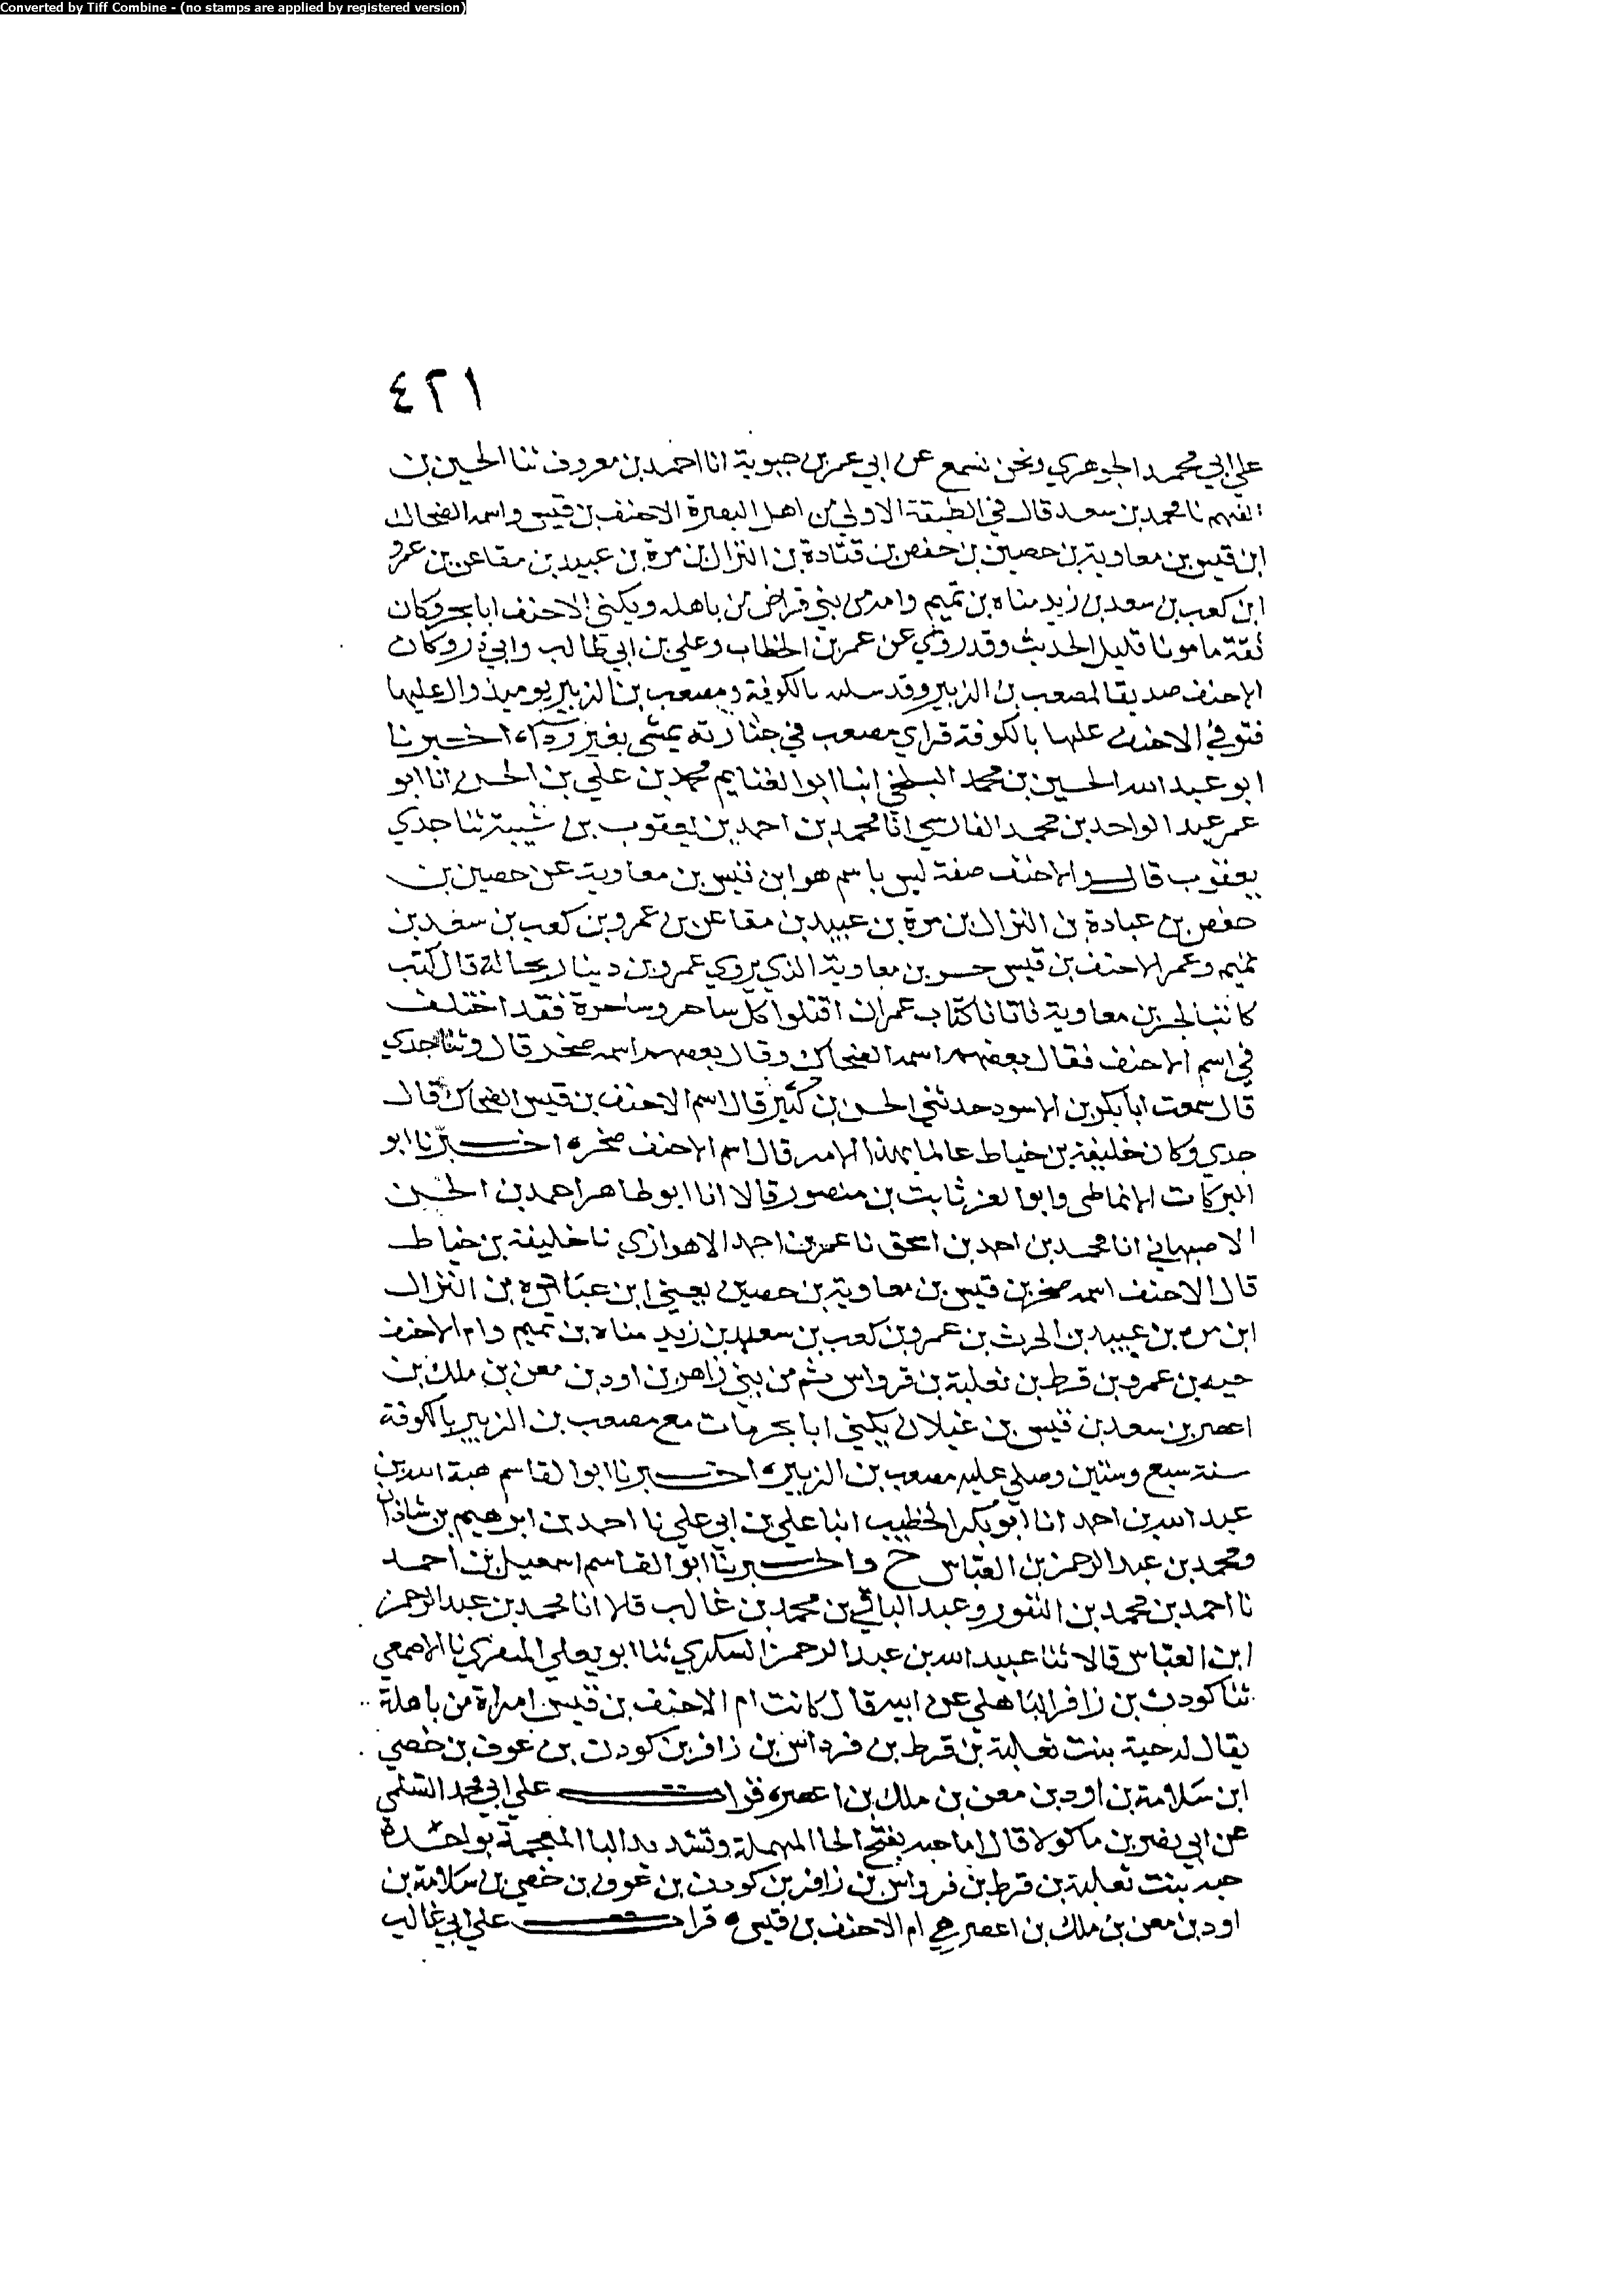 Converted by Tiff Combine - (no stamps are applied by registered version)
٤٢١
علي ابي محمد الجوهري ونحن نسمع عن ابي عمر بن حيوية انا احمد بن معروف ثنا الحسين بن
الفهم نا محمد بن سعد قال في الطبقة الاولي من اهل البصرة الاحنف بن قيس واسمه الضحاك
ابن قيس بن معاوية بن حصين بن حفص بن قتادة بن النزال بن مرة بن عبيد بن مقاعس بن عمرو
ابن كعب بن سعد بن زيد مناه بن تميم وامه من بني قراض من باهله ويكني الاحنف ابا بحر وكان
ثقة مامونا قليل الحديث وقد روي عن عمر بن الخطاب وعلي بن ابي طالب وابي ذر وكان
الاحنف صديقا لمصعب بن الزبير وقد سله بالكوفة ومصعب بن الزبير يوميذ وال عليها
فتوفي الاحنف عليها بالكوفة فراي مصعب في جنازته يمشي بغير رداء اخبرنا
ابو عبد الله الحسين بن محمد البلخي انبا ابو الغنايم محمد بن علي بن الحسن انا ابو
عمر عبد الواحد بن محمد الفارسي انا محمد بن احمد بن يعقوب بن شيبة ثنا جدي
يعقوب قال والاحنف صفة ليس باسم هو ابن قيس بن معاوية عن حصين بن
حفص بن عبادة بن النزال بن مرة بن عبيد بن مقاعس بن عمرو بن كعب بن سعد بن
تميم وعم الاحنف بن قيس حسر بن معاوية الذي يروي عمرو بن دينار بحالة قال كتب
كاتبا لجزبن معاوية فاتانا كتاب عمر ان اقتلوا كل ساحر وساحرة فقد اختلف
في اسم الاحنف فقال بعضهم اسمه الضحاك وقال بعضهم اسمه صخر قال وثنا جدي
قال سمعت ابا بكر بن الاسود حدثني الحسن بن كثير قال اسم الاحنف بن قيس الضحاك قال
جدي وكان خليفة بن خياط عالما بهذا الامر قال اسم الاحنف صخره اخبرنا ابو
البركات الانماطي وابو العز ثابت بن منصور قالا انا ابو طاهر احمد بن الحسن
الاصبهاني انا محمد بن احمد بن اسحق نا عمر بن احمد الاهوازي نا خليفة بن خياط
قال الاحنف اسمه صخر بن قيس بن معاوية بن حصين يعني ابن عبادة بن النزال
ابن مره بن عبيد بن الحرث بن عمرو بن كعب بن سعد بن زيد مناه بن تميم وام الاحنف
حبه بن عمرو بن قرط بن ثعلبة بن قرواس ثم من بني زاهر بن اود بن معن بن ملك بن
اعصر بن سعد بن قيس بن غيلان يكني ابا بحر مات مع مصعب بن الزبير بالكوفة
سنة سبع وستين وصلي عليه مصعب بن الزبيره اخبرنا ابو القاسم هبة الله بن
عبد الله بن احمد انا ابو بكر الخطيب انبا علي بن ابي علي نا احمد بن ابرهيم بن شاذان
ومحمد بن عبد الرحمن بن العباس ح واخبرنا ابو القاسم اسمعيل بن احمد
نا احمد بن محمد بن النقور وعبد الباقي بن محمد بن غالب قالا انا محمد بن عبد الرحمن
ابن العباس قالا ثنا عبيد الله بن عبد الرحمن السكري ثنا ابو يعلي المنقري نا الاصمعي
ثنا كودن بن زافر الباهلي عن ابيه قال كانت ام الاحنف بن قيس امراة من باهلة
يقال له حبة بنت ثعلبة بن قرط بن قرواس بن زافر بن كودن بن عوف بن خصي
ابن سلامة بن اود بن معن بن ملك بن اعصره قرات علي ابي محمد السلمي
عن ابي نصر بن ماكولا قال اما حبه بفتح الحا المهملة وتشديد البا المعجمة بواحدة
حبه بنت ثعلبة بن قرط بن قرواس بن زافر بن كودن بن عوف بن خصي بن سلامة بن
اود بن معن بن ملك بن اعصر هي ام الاحنف بن قيس ه قرات علي ابي غالب